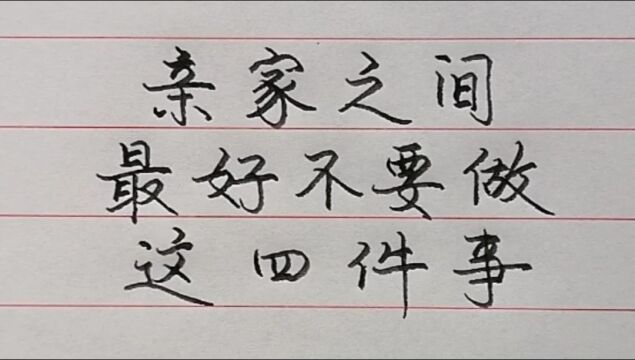 亲家之间
最好不要做
这四件事